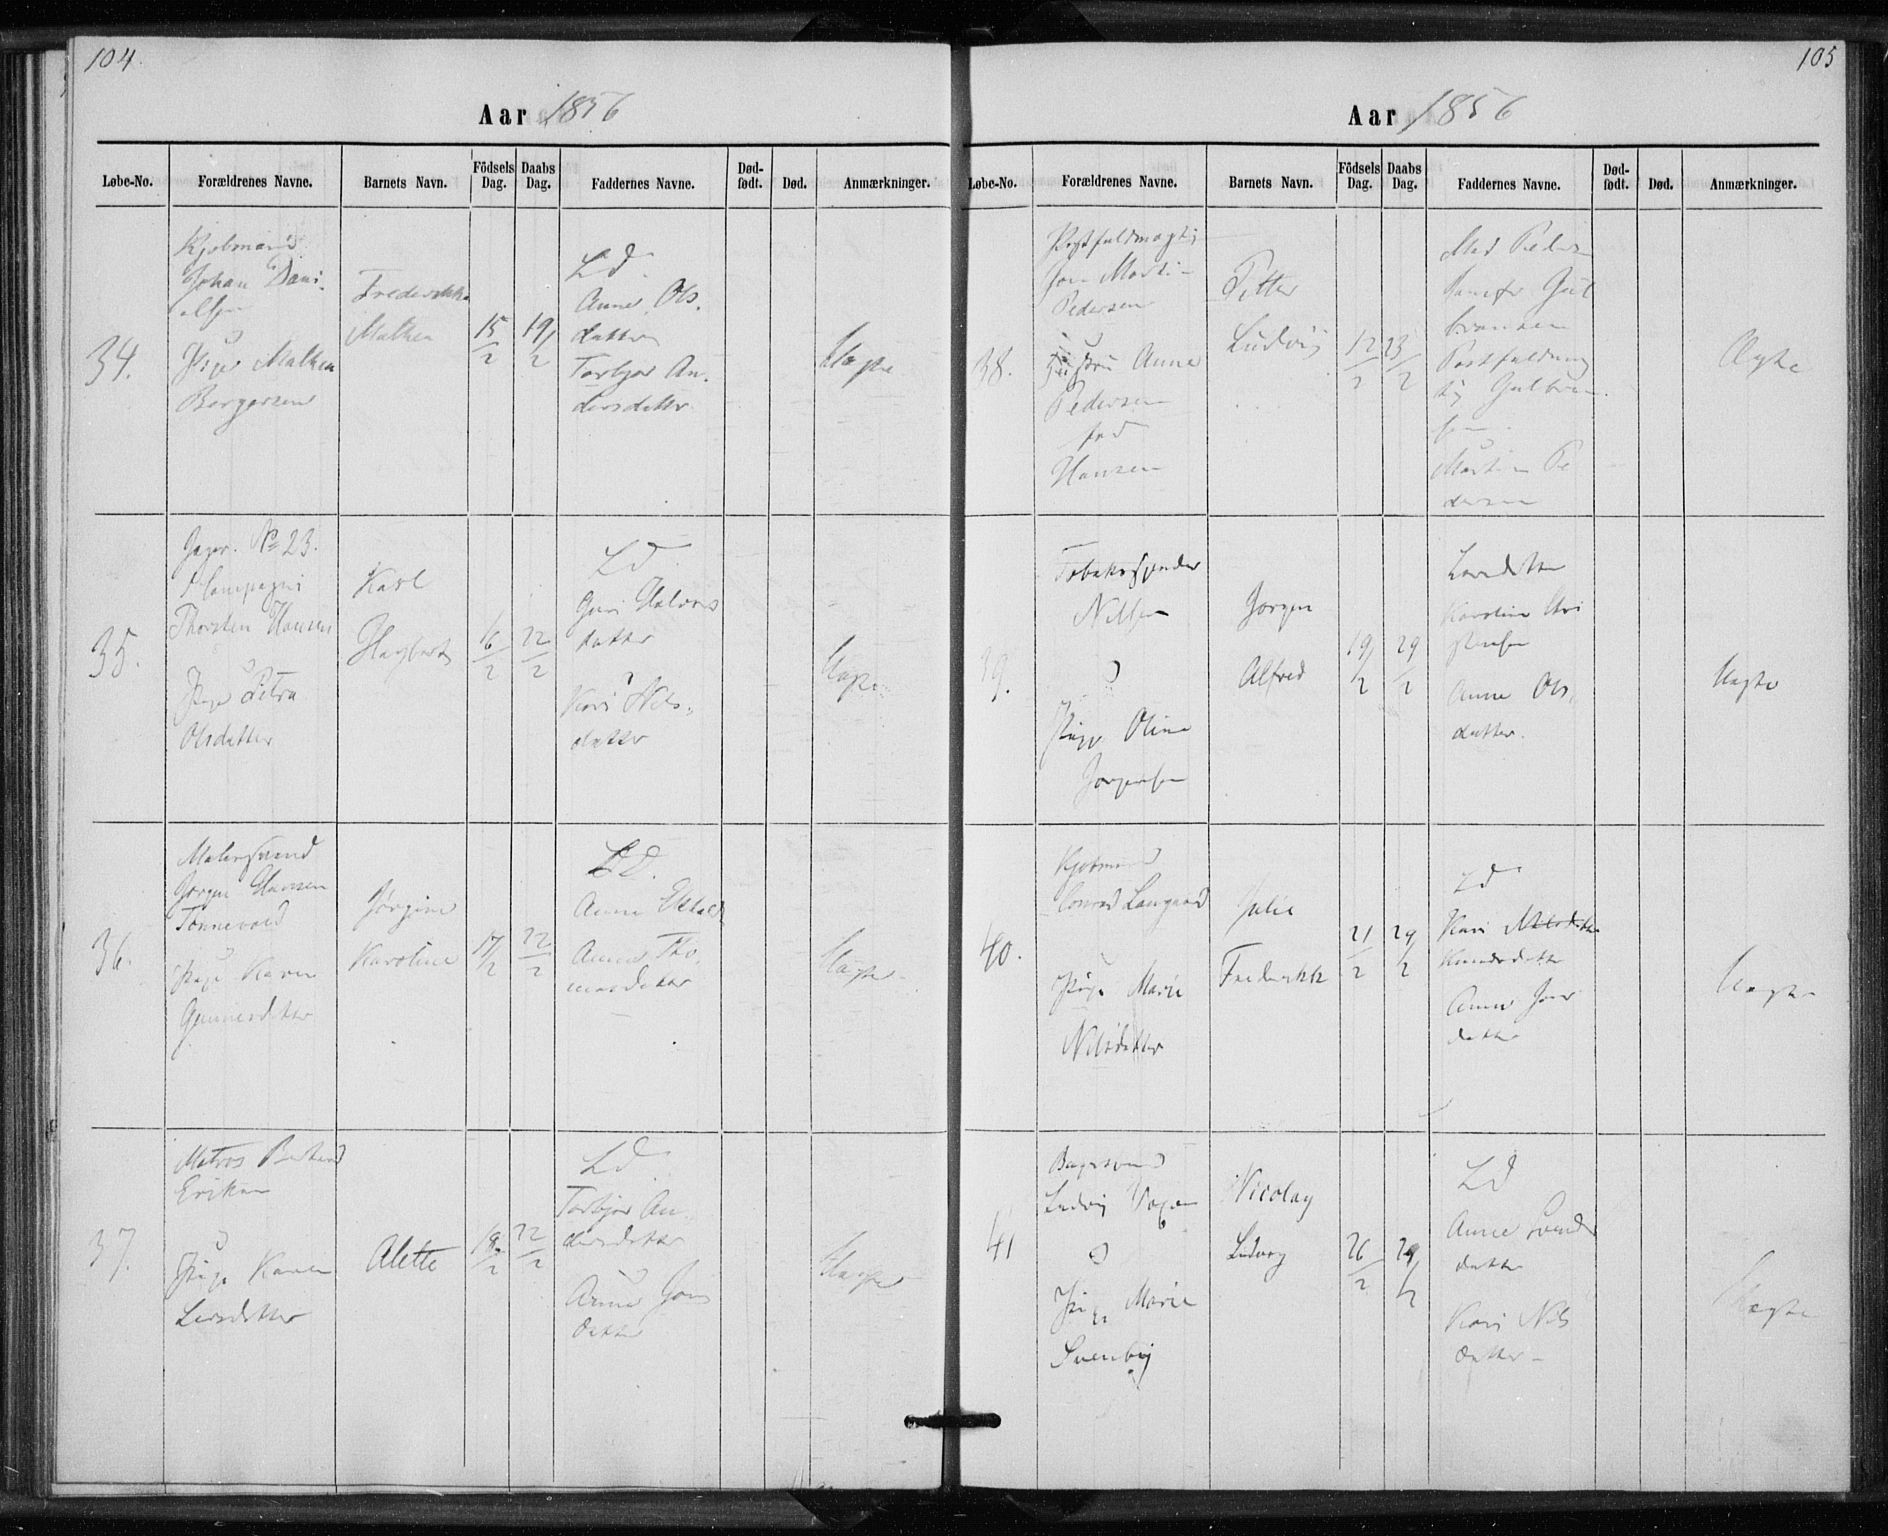 104.
Aar 1856
Løbe-No. Forældrenes Navne. Barnets Navn. Födsels Dag. Daabs Dag. Faddernes Navne. Død-födt. Død. Anmærkninger.
34.
Kjøbmand
Johan Dani-
elsen
Pige Malhea
Borgersen
Frederikke
Mathea
15/2
19/2
LD.
Anne Ols-
datter
Torbjør An-
dersdatter
Uægte
35.
Jæger. No 23.
Compagni
Thorsten Hansen
Pige Petra
Olsdatter
Karl
Hagbart
16/2
22/2
LD.
Guri Halvors
datter
Kari Nils-
datter
Uægte
36.
Malersvend
Jørgen Hansen
Tønnevold
Pige Karen
Gunnersdatter
Jørgine
Karoline
17/2
22/2
LD.
Anne
Anne Tho-
masdatter
Uægte
37.
Matros
Eriksen
Pige Karen
Larsdatter
Alette
18/2
22/2
LD.
Torbjør An-
dersdatter
Anne Jons
datter
Uægte
105
Aar 1856
Løbe-No. Forældrenes Navne. Barnets Navn. Födsels Dag. Daabs Dag. Faddernes Navne. Død-födt. Død. Anmærkninger.
38.
Postfuldmægtig
Martin
Pedersen
Anne
Pedersen
fød
Hansen
Petter
Ludvig
12/2
23/2
Mad Peder
Jomfr Gul
bransen
Postfuldmæg
tig Gulbran-
sen.
Martin Pe
dersen
Ægte
39.
Tobakspinder
Nilsen
Pige Oline
Jørgensen
Jørgen
Alfred
19/2
29/2
Karoline Chri
stensen
Anne Ols-
datter.
Uægte
40.
Kjøbmand
Conrad Langaard
Pige Marie
Nilsdatter
Julie
Frederikke
21/2
29/2
LD
Kari
Knudsdatter
Anne Jons
datter
Uægte
41
Bagersvend
Ludvig
Pige Marie
Svenby
Nicolay
Ludvig
26/2
29/2
LD
Anne Svends
datter
Kari Nils
datter
Uægte